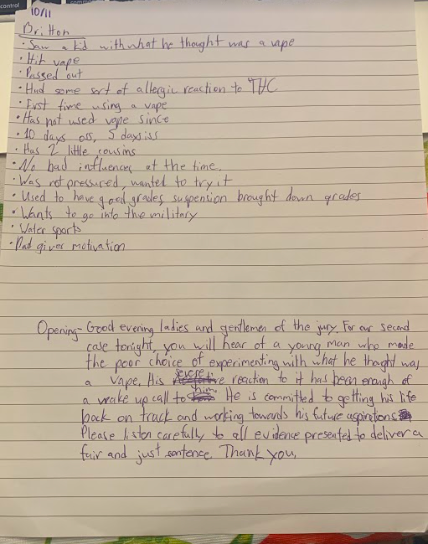 control
10/11
Britton
• Saw a kid with what he thought was a vape
• Hit vape
• Passed out
• Had some sort of allergic reaction to THC
• First time using a vape
• Has not used vape since
• 10 days oss, 5 days iss
• Has 2 little cousins
• No bad influences at the time.
• Was not pressured, wanted to try it
• Used to have good grades suspension brought down grades
• Wants to go into the military
• Water sports
• Dad gives motivation
Opening- Good evening ladies and gentlemen of the jury. For our second
case tonight, you will hear of a young man who made
the poor choice of experimenting with what he thought was
a vape. His severe reaction to it has been enough of
a wake up call to him. He is committed to getting his life
back on track and working towards his future aspirations
Please listen carefully to all evidence presented to deliver a
fair and just sentence. Thank you.